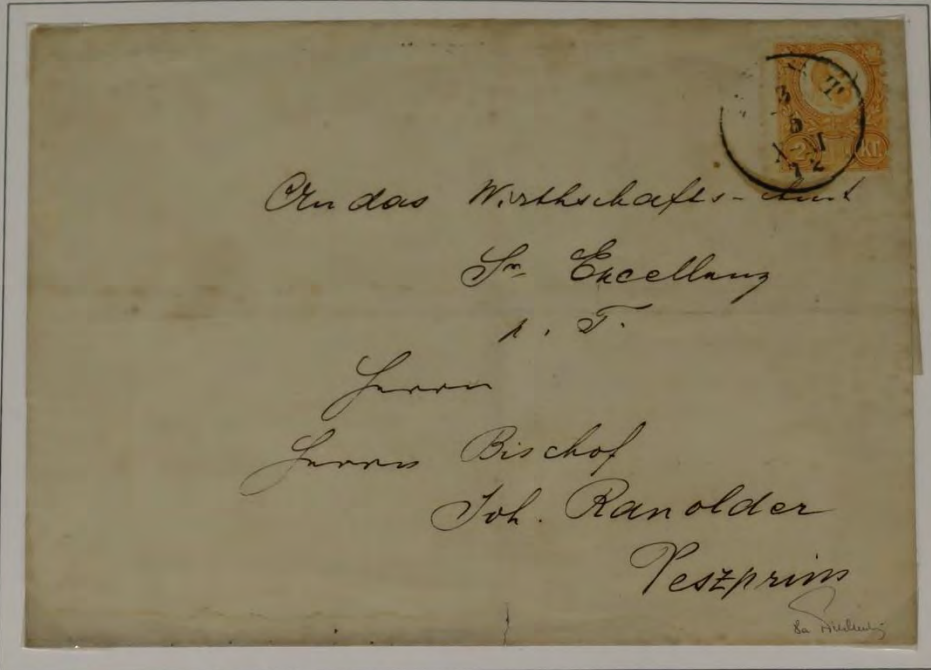 T
3
5
XI
72
2 kr.
An das Wirthschafts-Amt
Sr Excellenz
p. T.
Herrn
Herrn Bischof
Joh. Ranolder
Veszprim